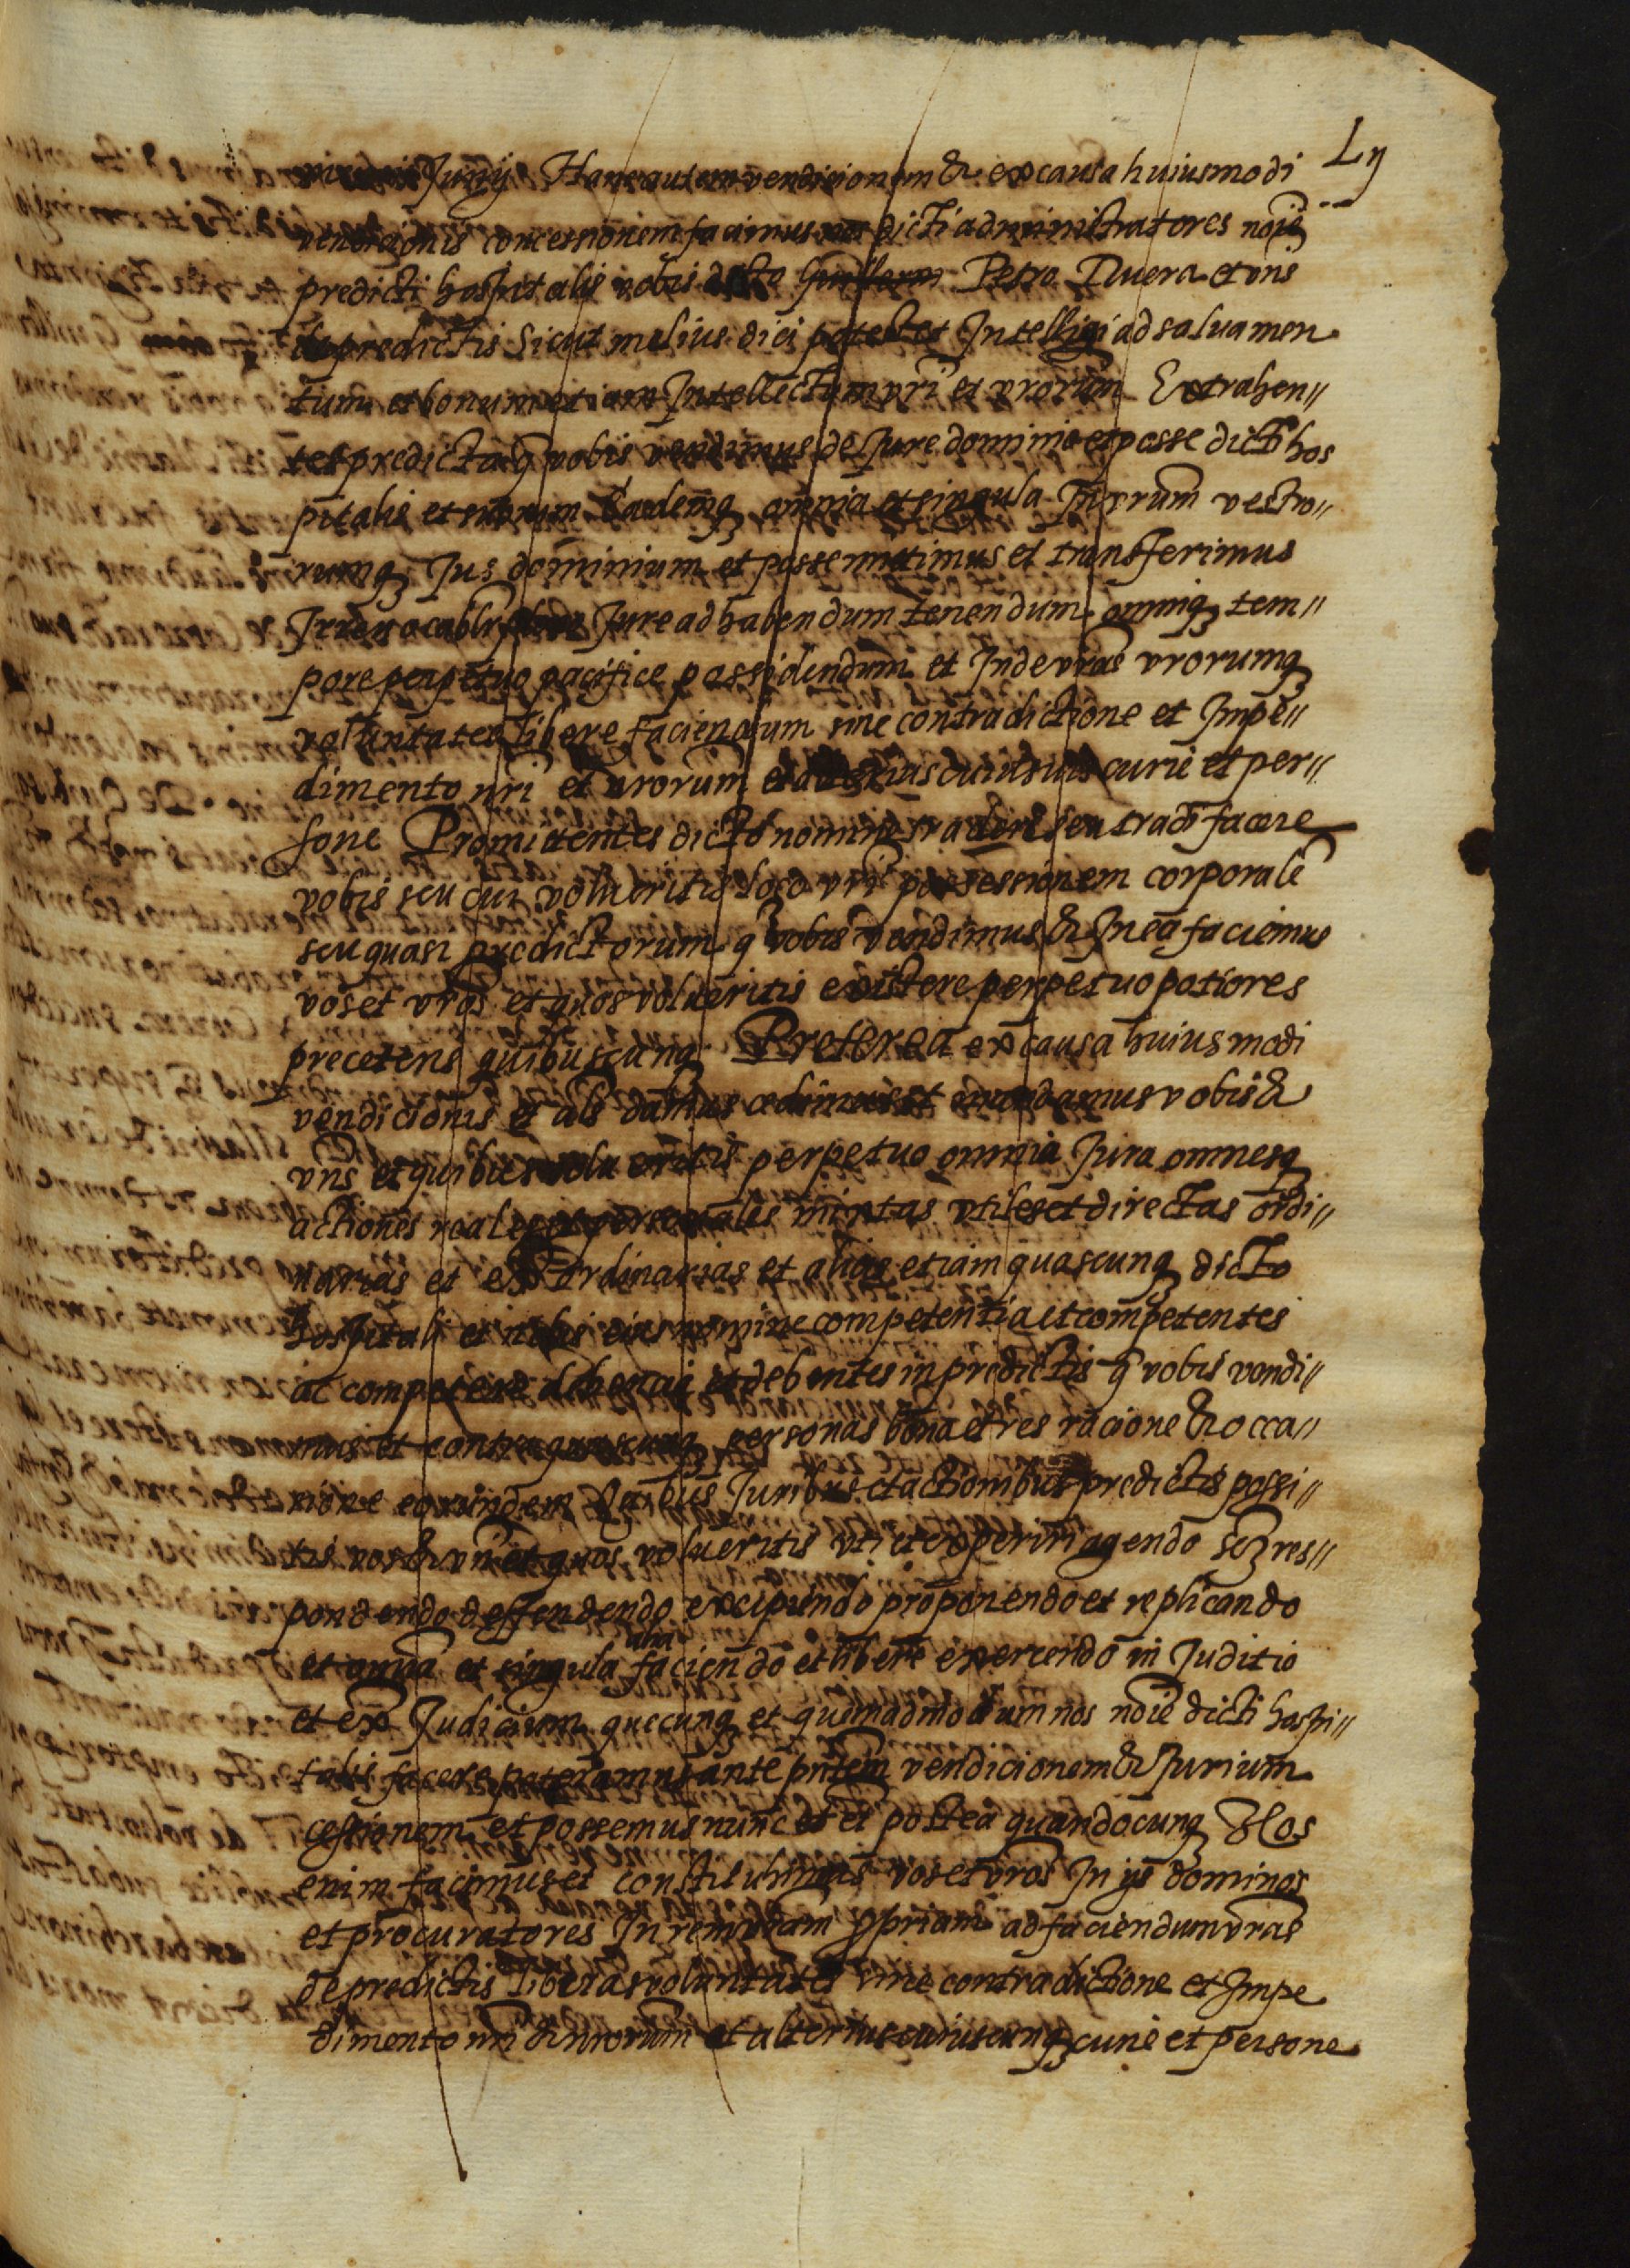 Lij
Junij Hanc autem vendicionem & ex causa huiusmodi
vendicionis concessionem facimus nos dicti administratores noie
predicti hospitalis vobis dicto Petro Duera et vris
de predictis Sicut melius dici potest et Intelligi ad saluamen
tum et bonum etiam Intellectum vri et vrorum Extrahen//
tes predicta q vobis vendimus de Jure dominio et posse dicti hos
pitalis et nrorum Eademq omnia et singula In vrum vestro//
rumq Jus dominium et posse mittimus et transferimus
Irreuocabilr Jure ad habendum tenendum omniq tem//
pore perpetuo pacifice possidendum et Inde vras vrorumq
voluntates libere faciendum sine contradictione et Impe//
dimento nri et nrorum et alterius cuiusuis curie et per//
sone Promittentes dicto nomine tradere seu tradi facere
vobis seu cui volueritis loco vri possessionem corporale
seu quasi predictorum q vobis vendimus & In ea faciemus
vos et vros et quos volueritis existere perpetuo potiores
preceteris quibuscunq Preterea ex causa huiusmodi
vendicionis et als damus cedimus et mandamus vobis &
vris et quibus volueritis perpetuo omnia Jura omnesq
actiones reales et personales mixtas vtiles et directas ordi//
narias et extraordinarias et alias etiam quascunq dicto
hospitali et nobis eius nomine competentia et competentes
ac competere debencia et debentes in predictis q vobis vendi//
mus et contra quascunq personas bona et res racione & occa//
sione eorundem Quibus Juribus et actionibus predictis possi//
tis vos & vri et quos volueritis vti et experiri agendo scz res//
pondendo deffendendo excipiendo proponendo et replicando
et omia et singula alia faciendo et libere exercendo in Juditio
et ex Judicium quecunq et quemadmodum nos noie dicti hospi//
talis facere poteramus ante pntem vendicionem & Jurium
cessionem et possemus nunc et et postea quandocunq Nos
enim facimus et constituhimus vos et vros In ijs dominos
et procuratores In rem vram propriam ad faciendum vras
de predictis liberas voluntates sine contradictione et Impe
dimento nri & nrorum et alterius cuiuscunq curie et persone